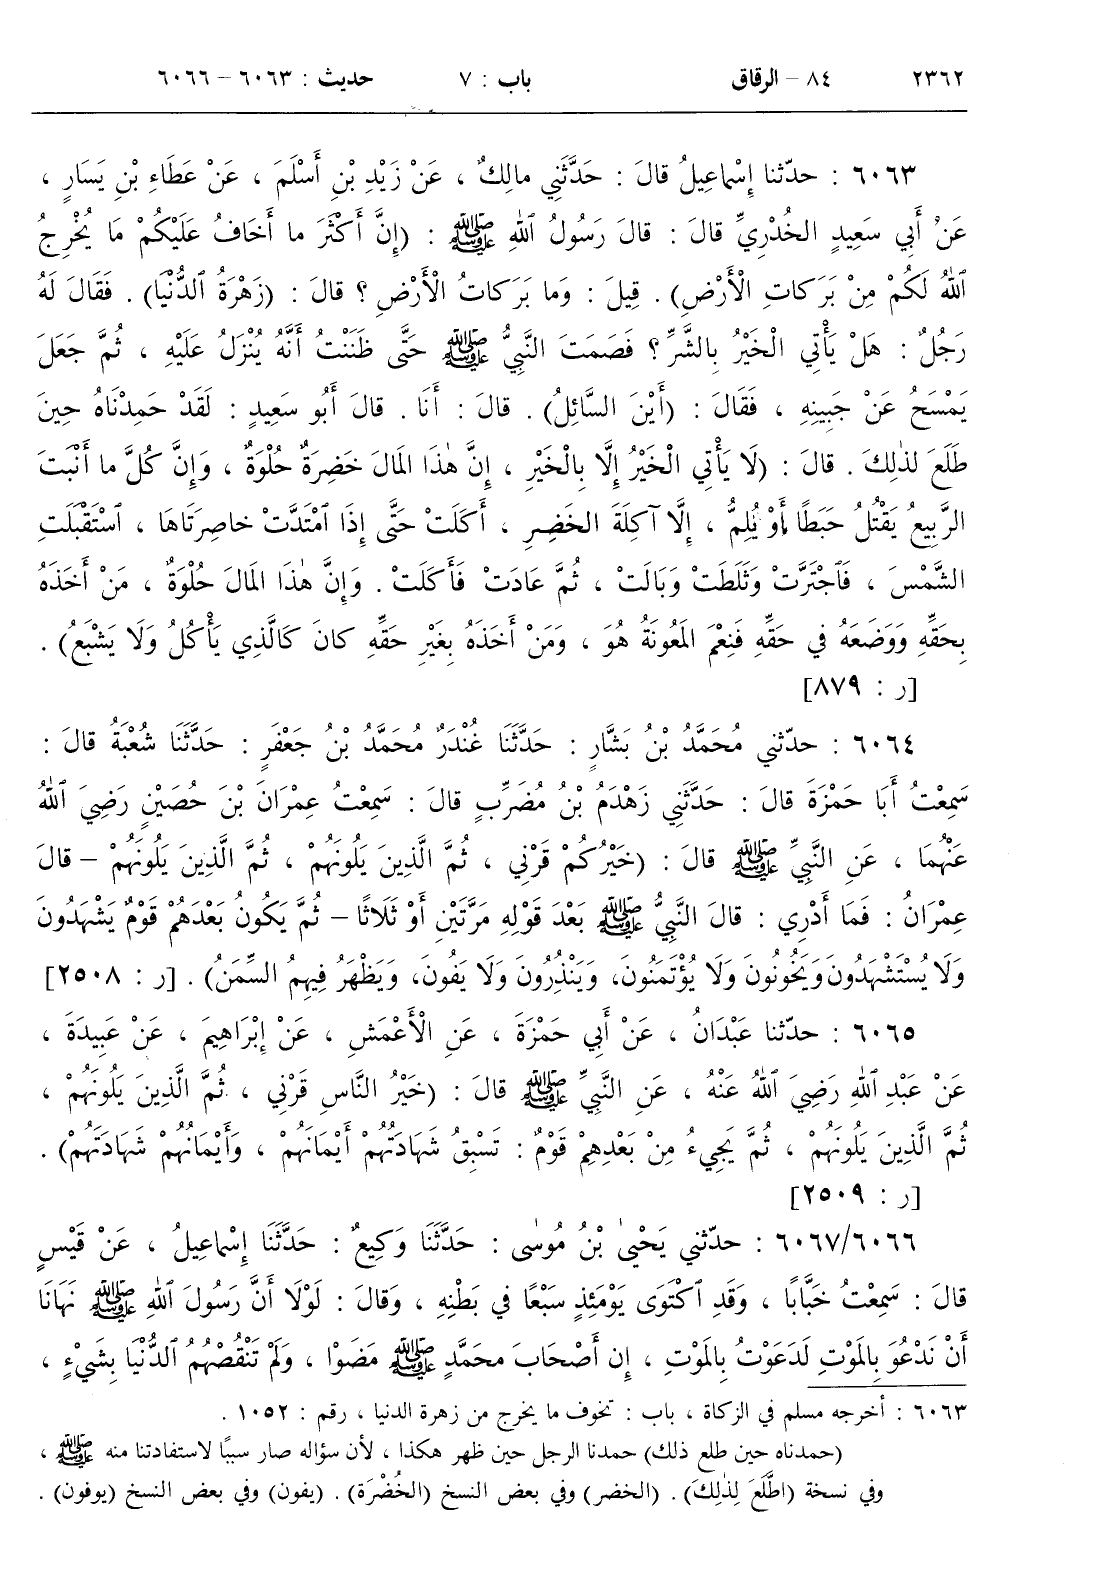 ٢٣٦٢ ٨٤ – الرقاق باب : ٧ حديث : ٦٠٦٣ – ٦٠٦٦
٦٠٦٣ : حدّثنا إِسْماعِيلُ قالَ : حَدَّثَنِي مالِكٌ ، عَنْ زَيْدِ بْنِ أَسْلَمَ ، عَنْ عَطَاءِ بْنِ يَسَارٍ ،
عَنْ أَبِي سَعِيدٍ الخُدْرِيِّ قالَ : قالَ رَسُولُ ٱللهِ ﷺ : (إِنَّ أَكْثَرَ ما أَخافُ عَلَيْكُمْ مَا يُخْرِجُ
ٱللهُ لَكُمْ مِنْ بَرَكاتِ الْأَرْضِ) . قِيلَ : وَما بَرَكاتُ الْأَرْضِ ؟ قالَ : (زَهْرَةُ ٱلدُّنْيَا) . فَقَالَ لَهُ
رَجُلٌ : هَلْ يَأْتِي الْخَيْرُ بِالشَّرِّ ؟ فَصَمَتَ النَّبِيُّ ﷺ حَتَّى ظَنَنْتُ أَنَّهُ يُنْزَلُ عَلَيْهِ ، ثُمَّ جَعَلَ
يَمْسَحُ عَنْ جَبِينِهِ ، فَقَالَ : (أَيْنَ السَّائِلُ) . قالَ : أَنَا . قالَ أَبُو سَعِيدٍ : لَقَدْ حَمِدْنَاهُ حِينَ
طَلَعَ لذٰلِكَ . قالَ : (لَا يَأْتِي الْخَيْرُ إِلَّا بِالْخَيْرِ ، إِنَّ هٰذَا المَالَ خَضِرَةٌ حُلْوَةٌ ، وَإِنَّ كُلَّ ما أَنْبَتَ
الرَّبِيعُ يَقْتُلُ حَبَطًا أَوْ يُلِمُّ ، إِلَّا آكِلَةَ الخَضِرِ ، أَكَلَتْ حَتَّى إِذَا ٱمْتَدَّتْ خاصِرَتَاهَا ، ٱسْتَقْبَلَتِ
الشَّمْسَ ، فَٱجْتَرَّتْ وَثَلَطَتْ وَبَالَتْ ، ثُمَّ عَادَتْ فَأَكَلَتْ . وَإِنَّ هٰذَا المَالَ حُلْوَةٌ ، مَنْ أَخَذَهُ
بِحَقِّهِ وَوَضَعَهُ فِي حَقِّهِ فَنِعْمَ المَعُونَةُ هُوَ ، وَمَنْ أَخَذَهُ بِغَيْرِ حَقِّهِ كانَ كَالَّذِي يَأْكُلُ وَلَا يَشْبَعُ) .
[ر : ٨٧٩]
٦٠٦٤ : حدّثني مُحَمَّدُ بْنُ بَشَّارٍ : حَدَّثَنَا غُنْدَرٌ مُحَمَّدُ بْنُ جَعْفَرٍ : حَدَّثَنَا شُعْبَةُ قالَ :
سَمِعْتُ أَبَا حَمْزَةَ قالَ : حَدَّثَنِي زَهْدَمُ بْنُ مُضَرِّبٍ قالَ : سَمِعْتُ عِمْرَانَ بْنَ حُصَيْنٍ رَضِيَ ٱللهُ
عَنْهُمَا ، عَنِ النَّبِيِّ ﷺ قالَ : (خَيْرُكُمْ قَرْنِي ، ثُمَّ الَّذِينَ يَلُونَهُمْ ، ثُمَّ الَّذِينَ يَلُونَهُمْ – قالَ
عِمْرَانُ : فَمَا أَدْرِي : قالَ النَّبِيُّ ﷺ بَعْدَ قَوْلِهِ مَرَّتَيْنِ أَوْ ثَلَاثًا – ثُمَّ يَكُونُ بَعْدَهُمْ قَوْمٌ يَشْهَدُونَ
وَلَا يُسْتَشْهَدُونَ وَيَخُونُونَ وَلَا يُؤْتَمَنُونَ، وَيَنْذُرُونَ وَلَا يَفُونَ، وَيَظْهَرُ فِيهِمُ السِّمَنُ) . [ر : ٢٥٠٨]
٦٠٦٥ : حدّثنا عَبْدَانُ ، عَنْ أَبِي حَمْزَةَ ، عَنِ الْأَعْمَشِ ، عَنْ إِبْرَاهِيمَ ، عَنْ عَبِيدَةَ ،
عَنْ عَبْدِ ٱللهِ رَضِيَ ٱللهُ عَنْهُ ، عَنِ النَّبِيِّ ﷺ قالَ : (خَيْرُ النَّاسِ قَرْنِي ، ثُمَّ الَّذِينَ يَلُونَهُمْ ،
ثُمَّ الَّذِينَ يَلُونَهُمْ ، ثُمَّ يَجِيءُ مِنْ بَعْدِهِمْ قَوْمٌ : تَسْبِقُ شَهَادَتُهُمْ أَيْمَانَهُمْ ، وَأَيْمَانُهُمْ شَهَادَتَهُمْ) .
[ر : ٢٥٠٩]
٦٠٦٧/٦٠٦٦ : حدّثني يَحْيىٰ بْنُ مُوسٰى : حَدَّثَنَا وَكِيعٌ : حَدَّثَنَا إِسْماعِيلُ ، عَنْ قَيْسٍ
قالَ : سَمِعْتُ خَبَّابًا ، وَقَدِ ٱكْتَوَى يَوْمَئِذٍ سَبْعًا فِي بَطْنِهِ ، وَقالَ : لَوْلَا أَنَّ رَسُولَ ٱللهِ ﷺ نَهَانَا
أَنْ نَدْعُوَ بِالمَوْتِ لَدَعَوْتُ بِالمَوْتِ ، إِن أَصْحَابَ محَمَّدٍ ﷺ مَضَوْا ، وَلَمْ تَنْقُصْهُمُ ٱلدُّنْيَا بِشَيْءٍ ،
٦٠٦٣ : أخرجه مسلم في الزكاة ، باب : تخوف ما يخرج من زهرة الدنيا ، رقم : ١٠٥٢ .
(حمدناه حين طلع ذلك) حمدنا الرجل حين ظهر هكذا ، لأن سؤاله صار سببًا لاستفادتنا منه ﷺ ،
وفي نسخة (اطَّلَعَ لِذٰلِكَ) . (الخضر) وفي بعض النسخ (الخُضْرَة) . (يفون) وفي بعض النسخ (يوفون) .